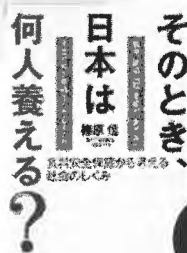 そのとき、
日本は
何人養える?
篠原 信
食料安全保障から考える
社会のしくみ